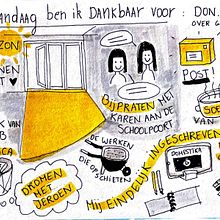 ANDAAG BEN IK DANKBAAR VOOR: DON.
OVER G
ZON
NEN
T ♥
POST!
BIJPRATEN MET
KAREN AAN DE
SCHOOLPOORT
VAN
K VAN
B
CA
DE WERKEN
DIE OPSCHIETEN
DOMESTIKA
MIJ EINDELIJK INGESCHREVEN
OKOMEN
MET
JEROEN